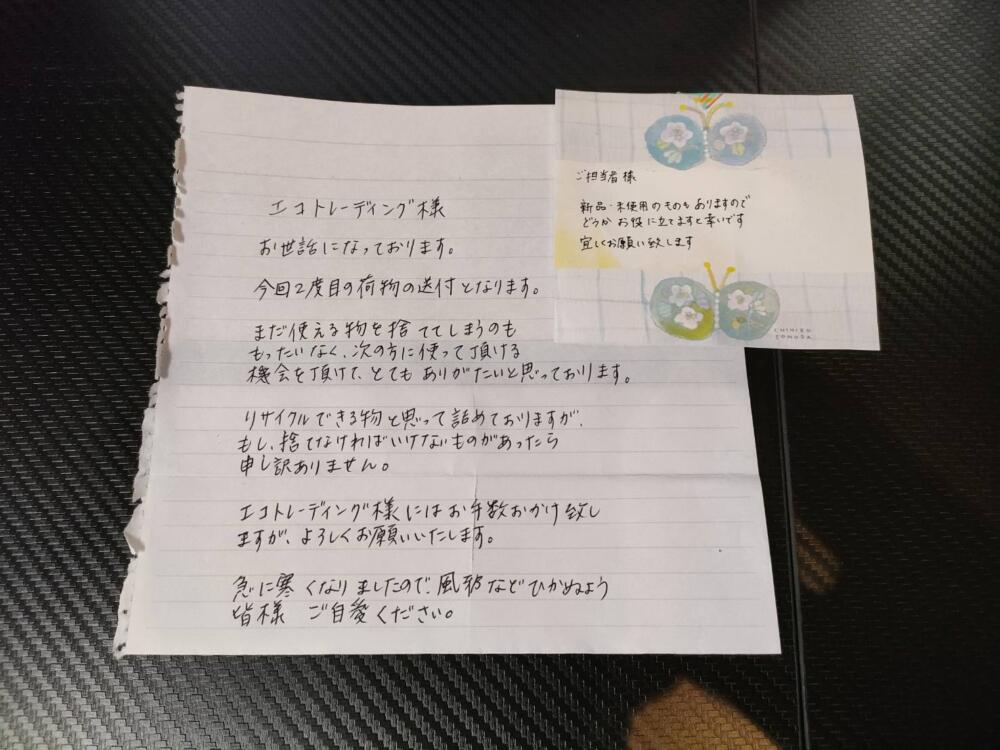 エコトレーディング様
お世話になっております。
今回2度目の荷物の送付となります。
まだ使える物を捨ててしまうのも
もったいなく、次の方に使って頂ける
機会を頂けて、とてもありがたいと思っております。
リサイクルできる物と思って詰めておりますが、
もし、捨てなければいけないものがあったら
申し訳ありません。
エコトレーディング様にはお手数おかけ致し
ますが、よろしくお願いいたします。
急に寒くなりましたので、風邪などひかぬよう
皆様 ご自愛ください。
ご担当者様
新品・未使用のものもありますので
どうか お役に立てますと幸いです
宜しくお願い致します
CHIHIRO
SONODA